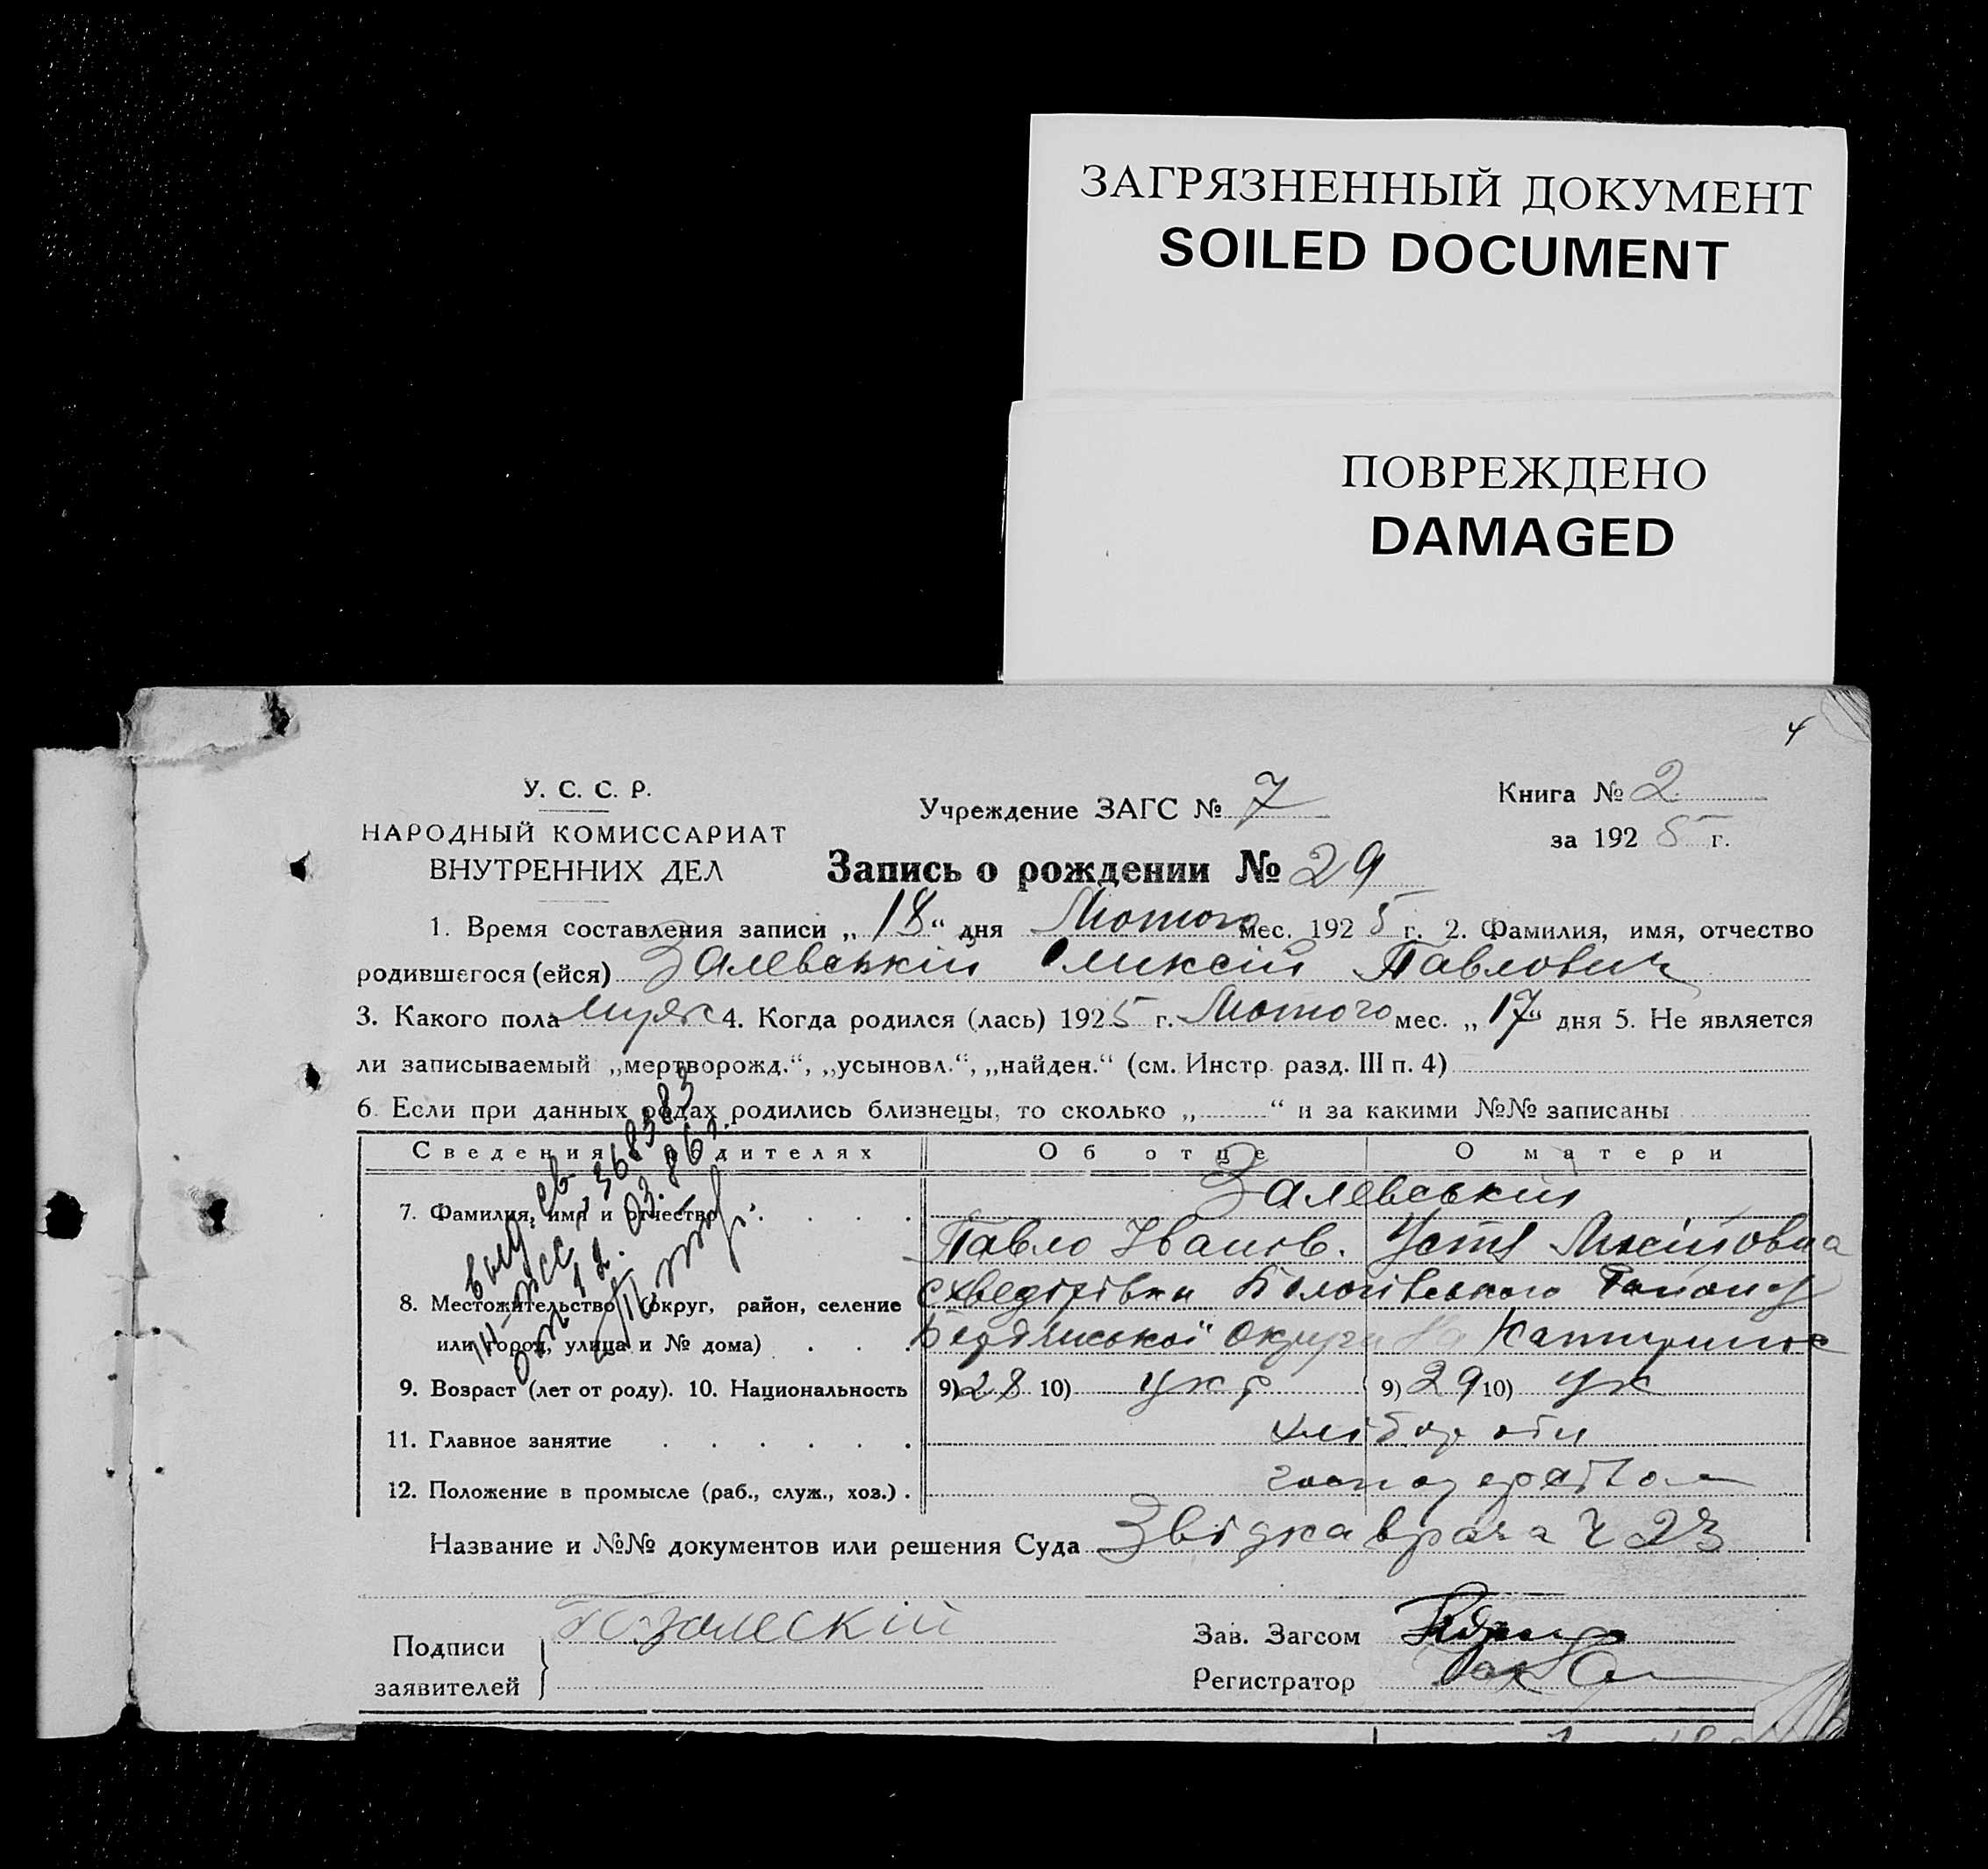 ЗАГРЯЗНЕННЫЙ ДОКУМЕНТ
SOILED DOCUMENT
ПОВРЕЖДЕНО
DAMAGED
4
У. С. С. Р.
НАРОДНЫЙ КОМИССАРИАТ
ВНУТРЕННИХ ДЕЛ
Учреждение ЗАГС № 7
Книга № 2
за 1925 г.
Запись о рождении № 29
1. Время составления записи „18“ дня Лютого мес. 1925 г. 2. Фамилия, имя, отчество
родившегося (ейся) Залевський Оликсій Павлович
3. Какого пола Муж 4. Когда родился (лась) 1925 г. Лютого мес. „17“ дня 5. Не является
ли записываемый „мертворожд.“, „усыновл.“, „найден.“ (см. Инстр. разд. III п. 4)
6. Если при данных родах родились близнецы, то сколько „ “ и за какими №№ записаны
Сведения о родителях Об отце О матери
7. Фамилия, имя и отчество Залевськии
Павло Іванов. Устя
8. Местожительство (округ, район, селение
или город, улица и № дома)
Бердянської Округи
9. Возраст (лет от роду). 10. Национальность 9) 28 10) укр 9) 29 10) ук
11. Главное занятие хлібороби
12. Положение в промысле (раб., служ., хоз.)
Название и №№ документов или решения Суда Звідка врача Ч 23
выд. св.
от 12. 03. 86 г.
Подписи
заявителей
Зав. Загсом
Регистратор